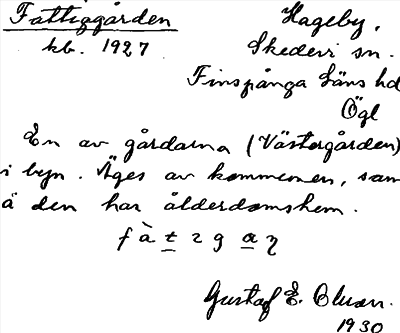 Fattiggården
kb. 1927
Hageby,
Skedevi sn.
Finspånga läns hd
Ögl
En av gårdarna (Västergården)
i byn. Äges av kommunen, som
å den har ålderdomshem.
f à t z g a η
Gustaf E. Olsson.
1930